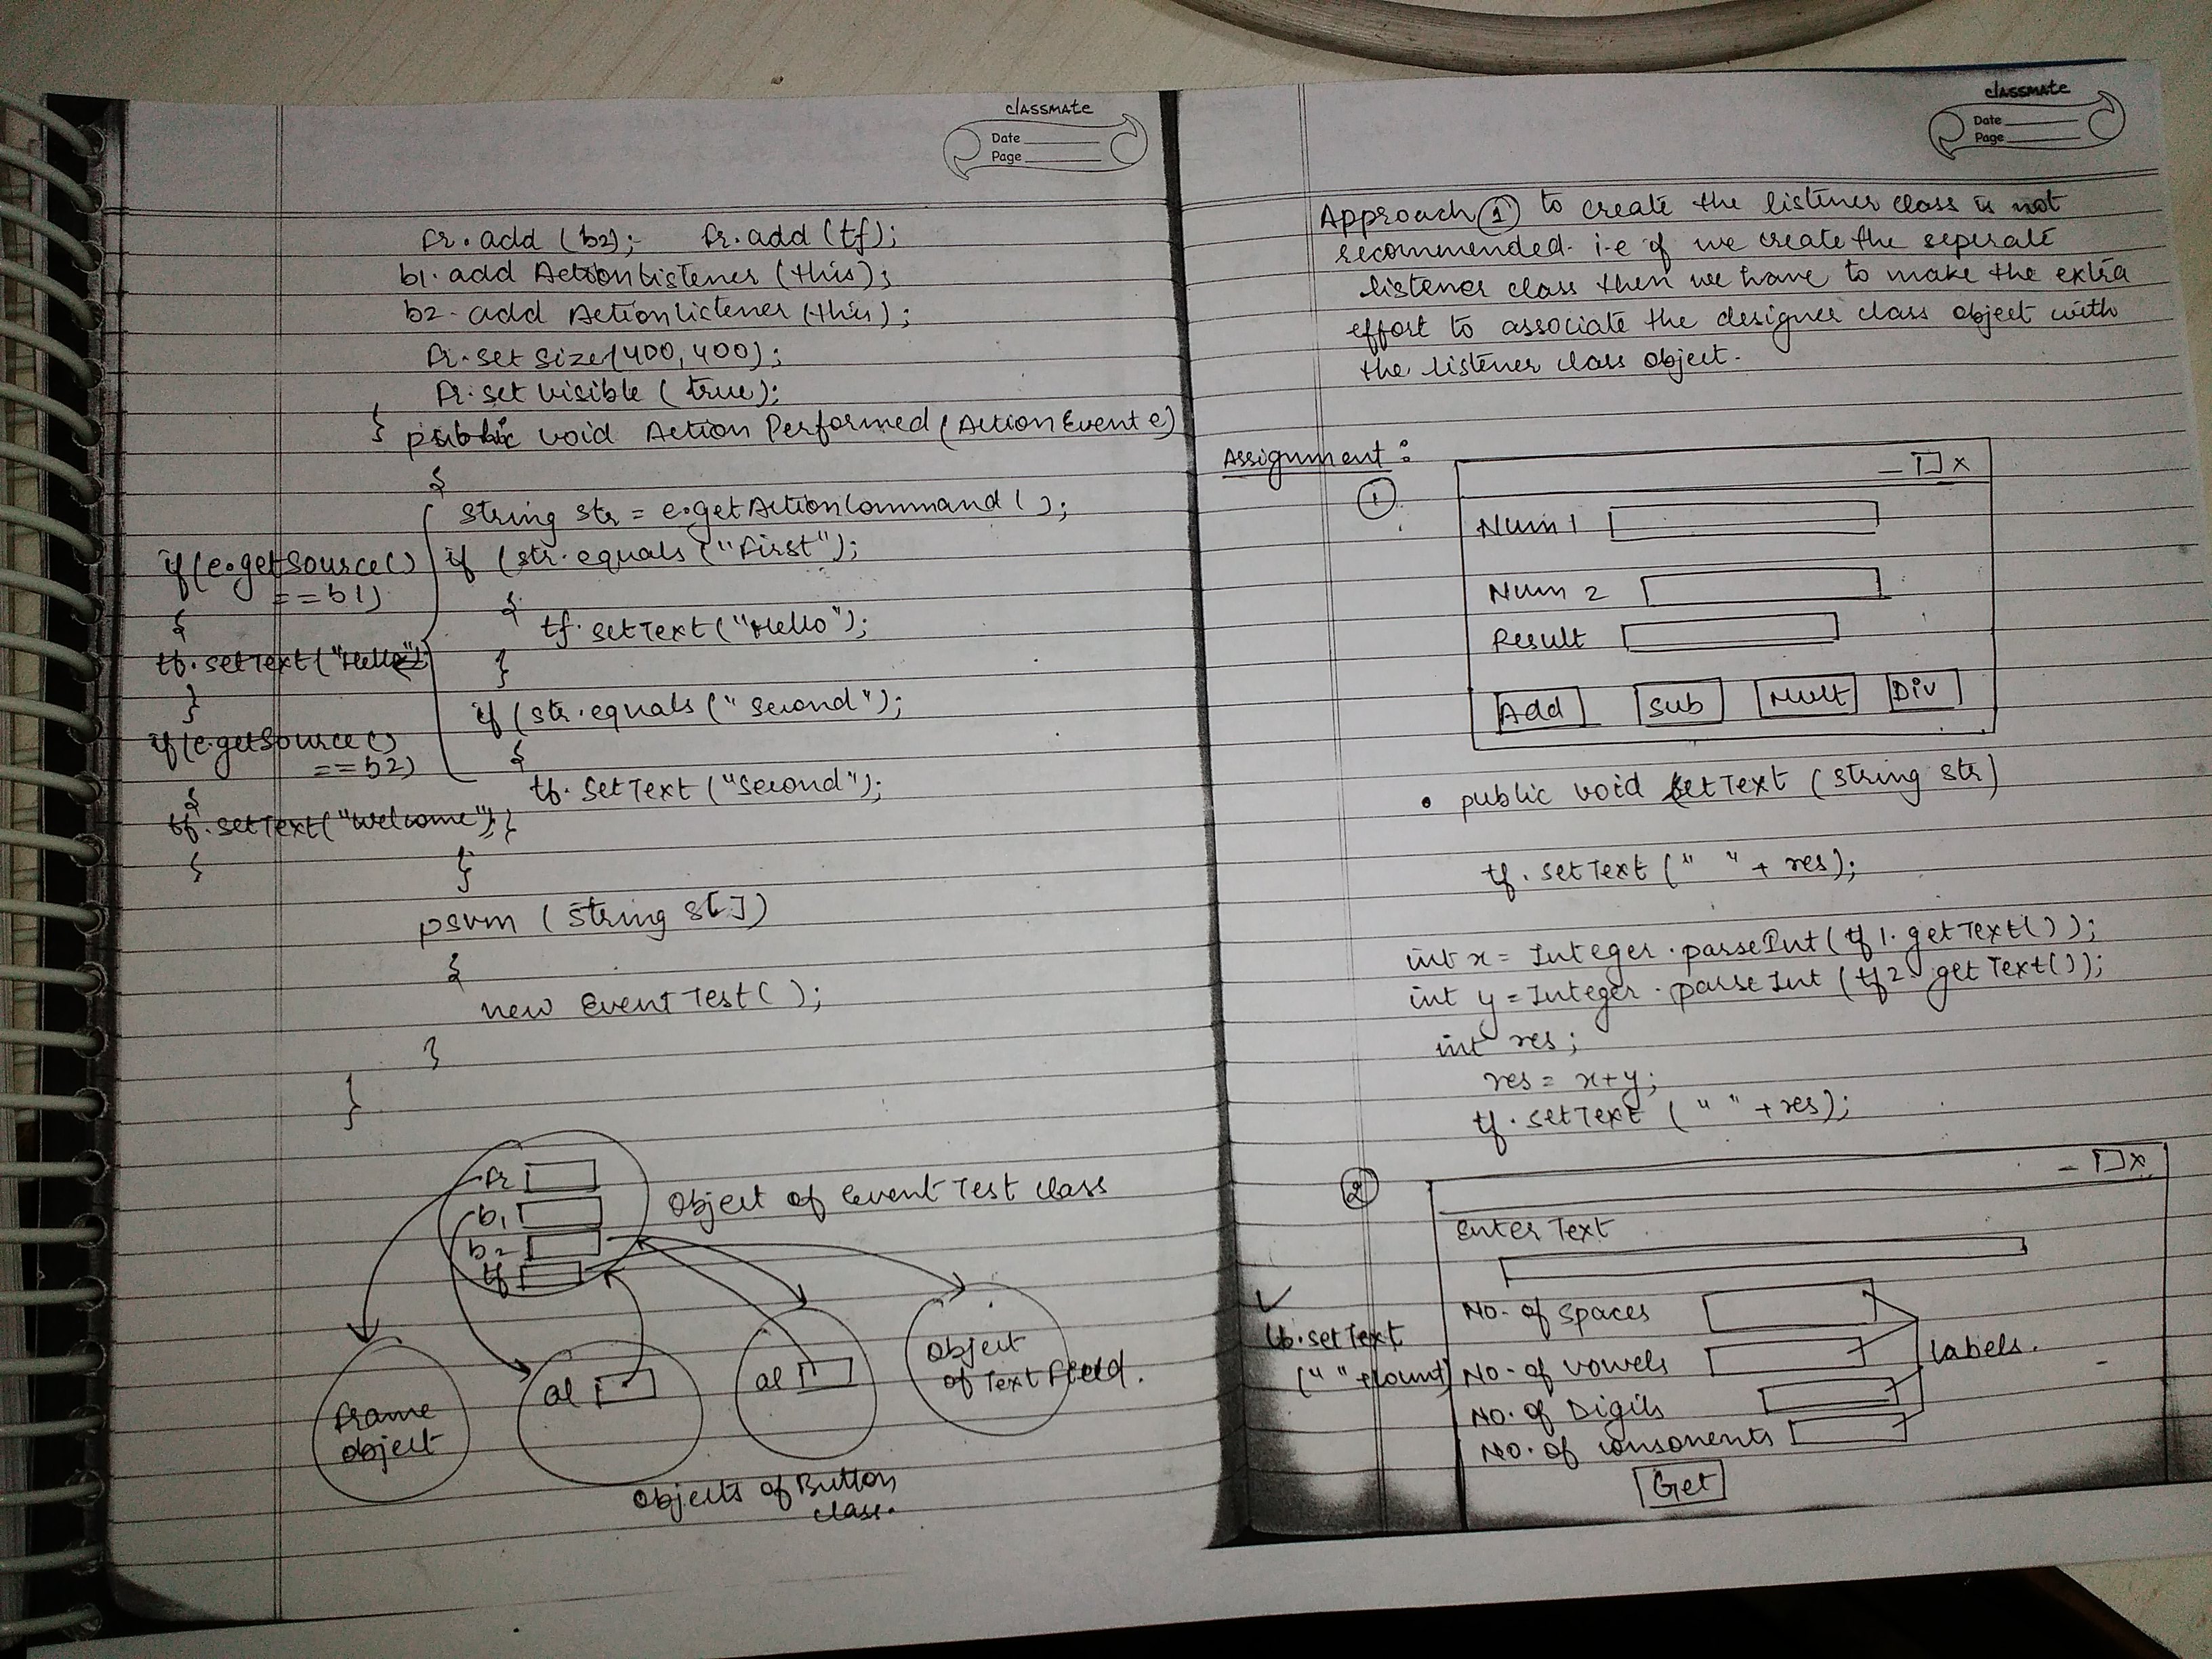 classmate
Date
Page
fr.add (b2); fr.add (tf);
b1.add ActionListener (this);
b2.add ActionListener (this);
fr.set size(400,400);
fr.set visible (true);
} public void Action Performed (ActionEvent e)
{
string str = e.getActionCommand ( );
if (str.equals ("First");
{
tf.setText ("Hello");
}
if (str.equals ("Second");
{
tf.setText ("Second");
}
}
if(e.getSource()
==b1)
{
tf.setText("Hello");
}
if(e.getSource()
==b2)
{
tf.setText("Welcome");
}
psvm (string s[])
{
new Event Test ( );
}
}
fr
b1
b2
tf
Object of Event Test class
Frame
object
al
al
Object
of Text Field.
Objects of Button
class.
classmate
Date
Page
Approach 1 to create the listener class is not
recommended. i.e if we create the seperate
listener class then we have to make the extra
effort to associate the designer class object with
the listener class object.
Assignment :
1
- x
Num 1
Num 2
Result
Add Sub Mult Div
• public void setText (string str)
tf.setText (" " + res);
int x = Integer.parseInt (tf1.getText());
int y = Integer.parseInt (tf2.getText());
int res;
res = x+y;
tf.setText (" " + res);
2
- x
Enter Text
No. of spaces
No. of vowels
No. of Digits
No. of consonents
labels.
Get
✓
lb.setText
(" "+count)